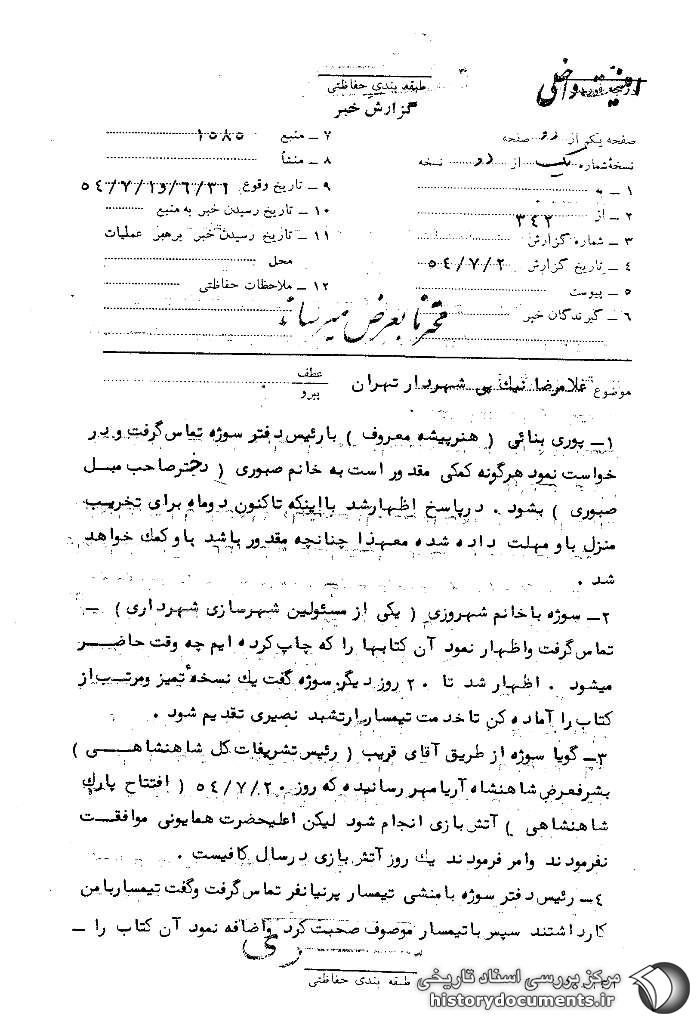 طبقه بندی حفاظتی
گزارش خبر
صفحه یکم از دو صفحه
نسخه شماره یک از دو نسخه
۱ ـ به
۲ ـ از ۳۴۲
۳ ـ شماره گزارش
۴ ـ تاریخ گزارش ۵۴/۷/۲
۵ ـ پیوست
۶ ـ گیرندگان خبر
۷ ـ منبع ۱۵۸۵
۸ ـ منشأ
۹ ـ تاریخ وقوع ۵۴/۷/۱و۶/۳۱
۱۰ ـ تاریخ رسیدن خبر به منبع
۱۱ ـ تاریخ رسیدن خبر برهبر عملیات
محل
۱۲ ـ ملاحظات حفاظتی
محترما بعرض میرساند
موضوع غلامرضا نیک پی شهردار تهران
عطف
پیرو
۱ـ پوری بنائی ( هنرپیشه معروف ) با رئیس دفتر سوژه تماس گرفت و در
خواست نمود هرگونه کمکی مقدور است به خانم صبوری ( دختر صاحب مبل
صبوری ) بشود . در پاسخ اظهار شد با اینکه تاکنون دوماه برای تخریب
منزل باو مهلت داده شده معهذا چنانچه مقدور باشد باو کمک خواهد
شد .
۲ـ سوژه با خانم شهروزی ( یکی از مسئولین شهرسازی شهرداری ) ـ
تماس گرفت و اظهار نمود آن کتابها را که چاپ کرده ایم چه وقت حاضر
میشود . اظهار شد تا ۲۰ روز دیگر. سوژه گفت یك نسخه تمیز و مرتب از
کتاب را آماده کن تا خدمت تیمسار ارتشبد نصیری تقدیم شود .
۳ـ گویا سوژه از طریق آقای قریب ( رئیس تشریفات کل شاهنشاهی )
بشرفعرض شاهنشاه آریامهر رسانیده که روز ۵۴/۷/۲۰ ( افتتاح پارک
شاهنشاهی ) آتش بازی انجام شود لیکن اعلیحضرت همایونی موافقت
نفرمودند وامر فرمودند یك روز آتش بازی در سال کافیست .
۴ـ رئیس دفتر سوژه با منشی تیمسار پرنیانفر تماس گرفت وگفت تیمسار با من
کار داشتند سپس با تیمسار موصوف صحبت کرد و اضافه نمود آن کتاب را ـ
طبقه بندی حفاظتی
مرکز بررسی اسناد تاریخی
historydocuments.ir